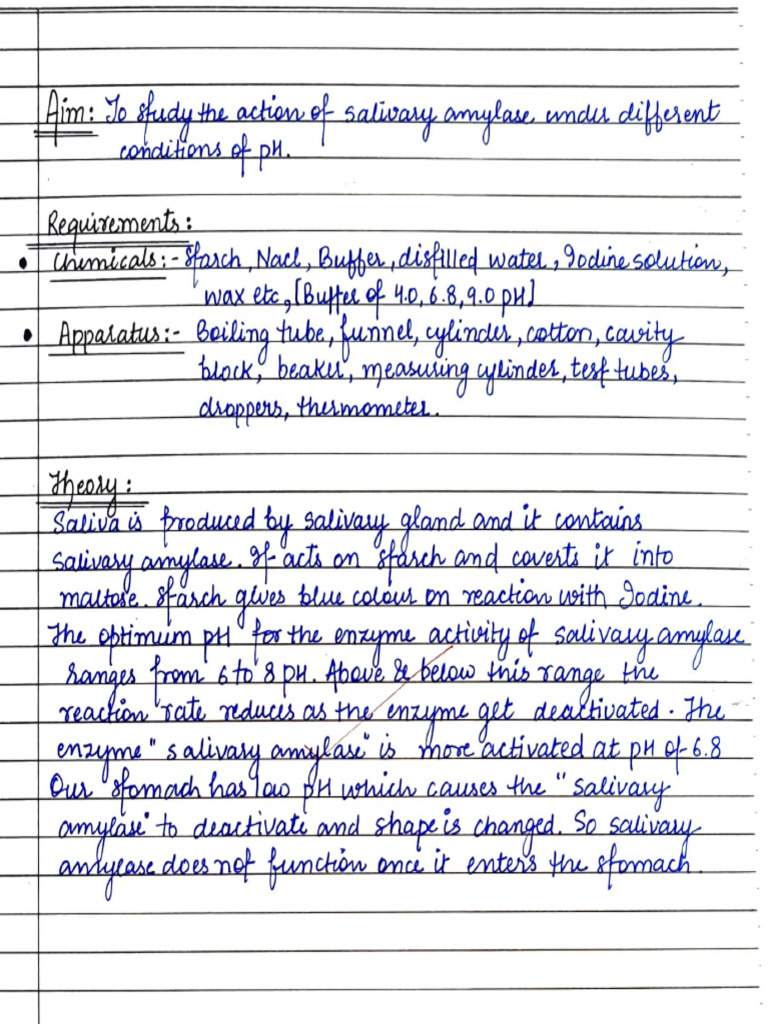 Aim: To study the action of salivary amylase under different
conditions of pH.
Requirements:
• Chemicals:- Starch, Nacl, Buffer, distilled water, Iodine solution,
wax etc, [Buffer of 4.0, 6.8, 9.0 pH]
• Apparatus:- Boiling tube, funnel, cylinder, cotton, cavity
block, beaker, measuring cylinder, test tubes,
droppers, thermometer.
Theory:
Saliva is produced by salivary gland and it contains
salivary amylase. It acts on starch and coverts it into
maltose. Starch gives blue colour on reaction with Iodine.
The optimum pH for the enzyme activity of salivary amylase
ranges from 6 to 8 pH. Above & below this range the
reaction rate reduces as the enzyme get deactivated. The
enzyme "salivary amylase" is more activated at pH of 6.8
Our stomach has low pH which causes the "salivary
amylase" to deactivate and shape is changed. So salivary
amlyease does not function once it enters the stomach.